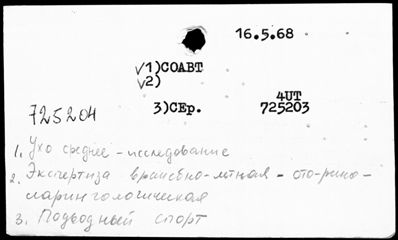 16.5.68
√1)СОАВТ
√2)
4UT
3)СЕр. 725203
725204
1. Ухо среднее - исследование
2. Экспертиза врачебно-летная - ото-рино-
ларингологическая
3. Подводный спорт